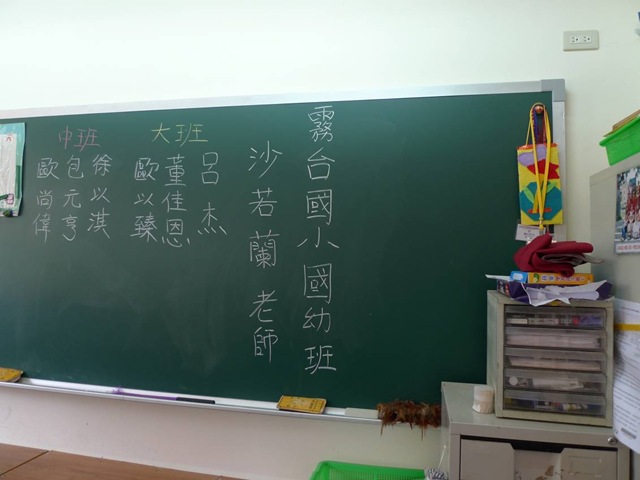 霧台國小國幼班
沙若蘭 老師
大班
呂 杰
董佳恩
歐以臻
中班
徐以漢
包元亨
歐尚偉